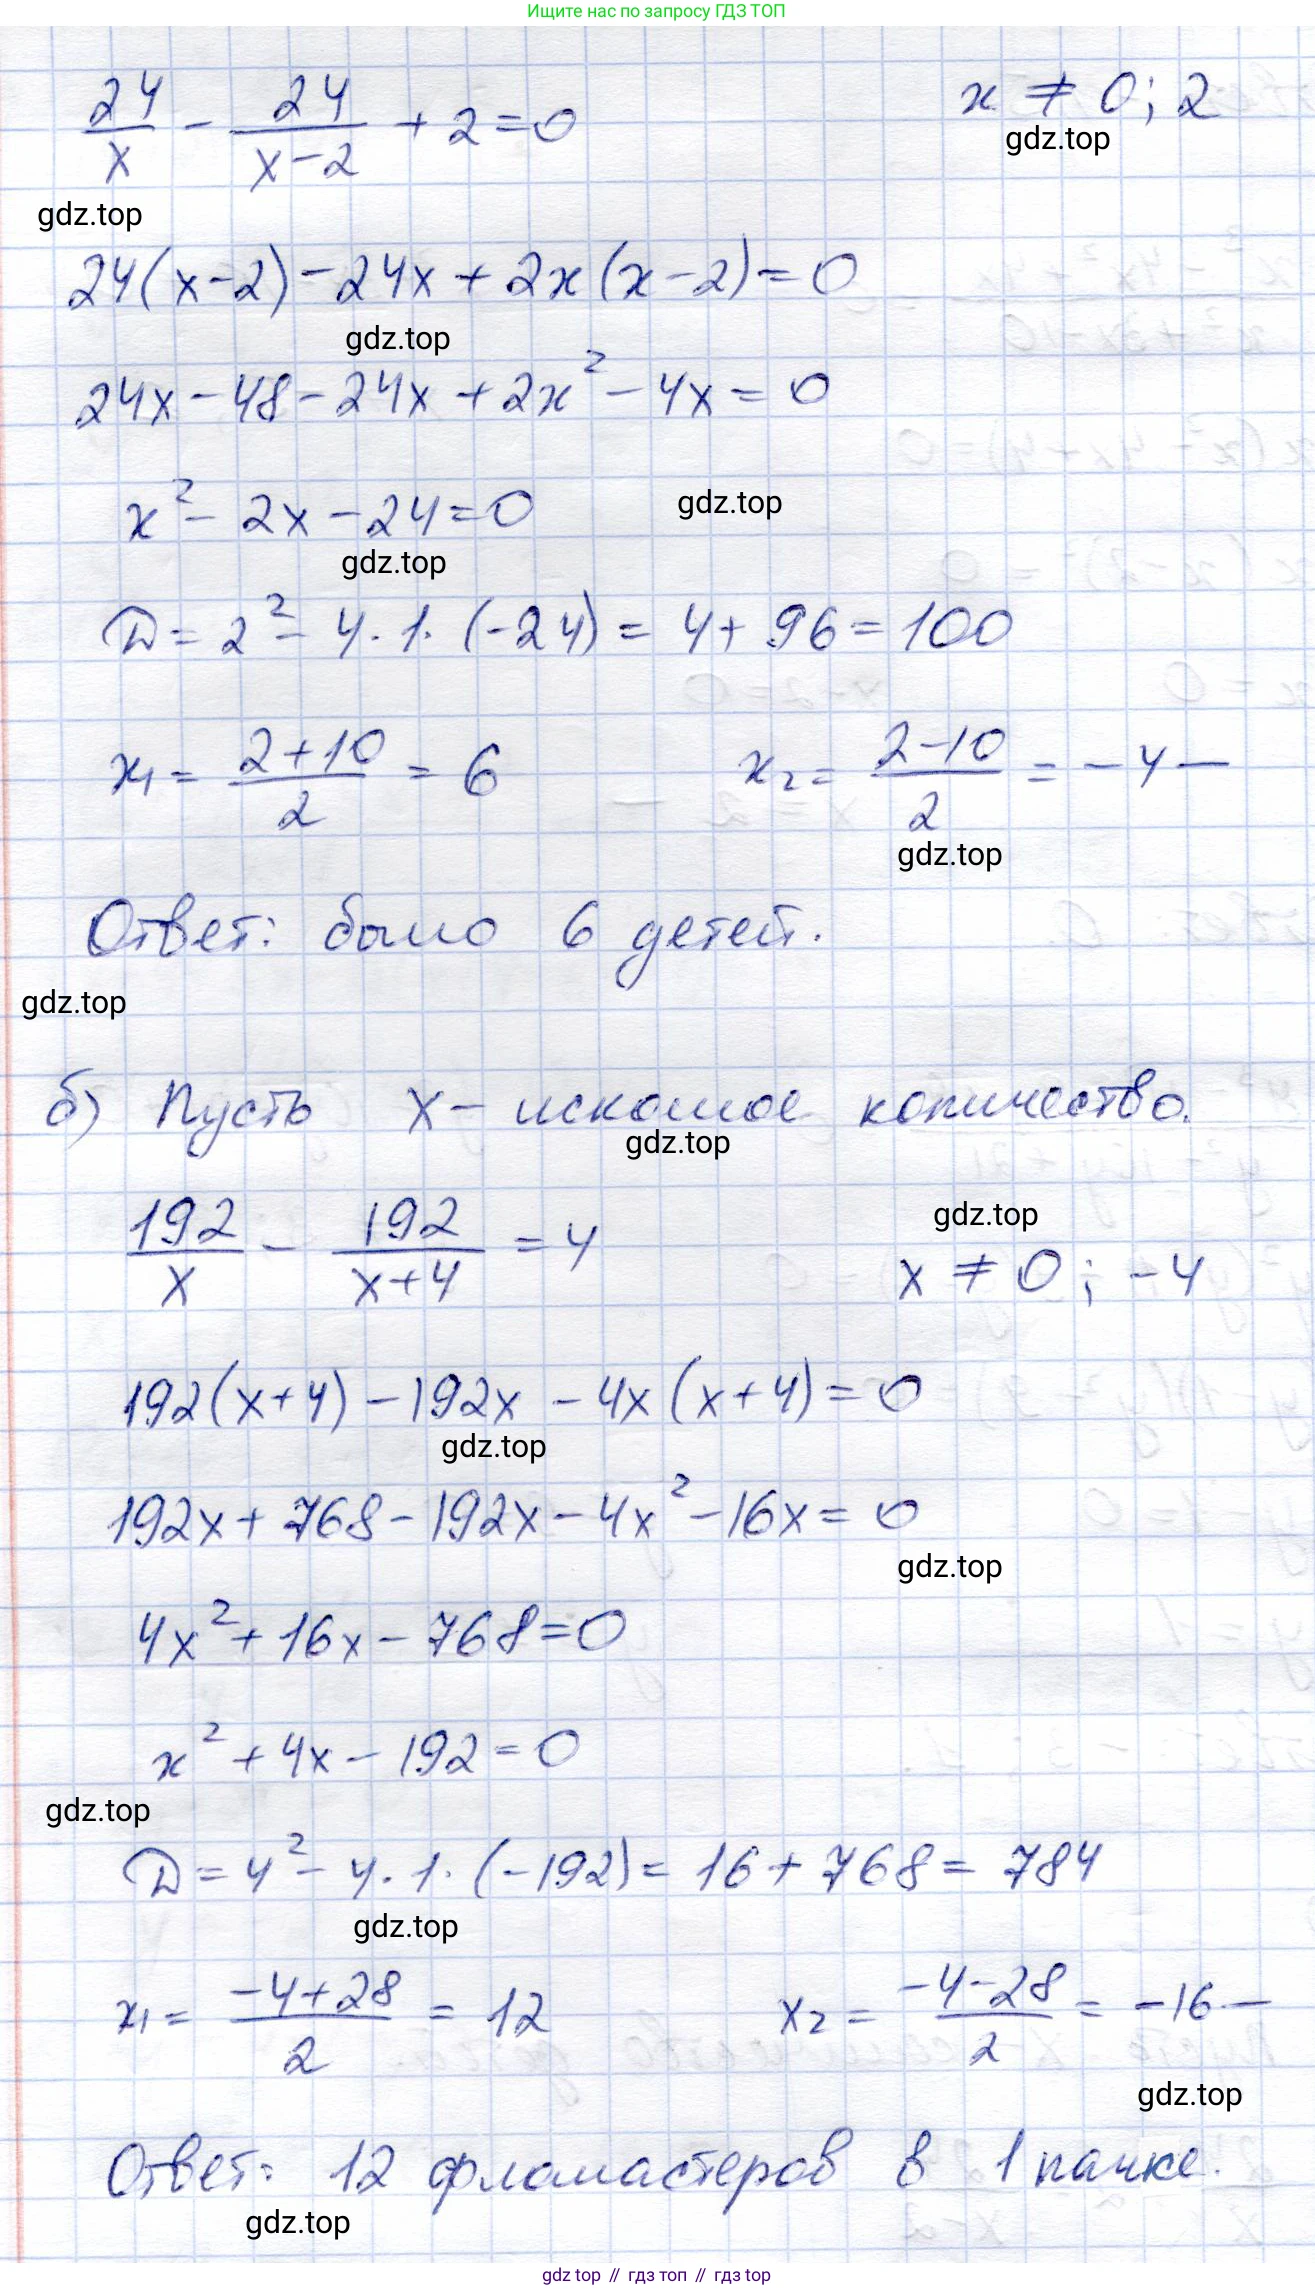 Ищите нас по запросу ГДЗ ТОП
24/x - 24/(x-2) + 2 = 0    x ≠ 0; 2
gdz.top
gdz.top
24(x-2) - 24x + 2x(x-2) = 0
gdz.top
24x - 48 - 24x + 2x² - 4x = 0
x² - 2x - 24 = 0
gdz.top
gdz.top
D = 2² - 4·1·(-24) = 4 + 96 = 100
x₁ = (2+10)/2 = 6    x₂ = (2-10)/2 = -4 —
gdz.top
Ответ: было 6 детей.
gdz.top
б) Пусть x - искомое количество.
gdz.top
192/x - 192/(x+4) = 4    x ≠ 0; -4
gdz.top
192(x+4) - 192x - 4x(x+4) = 0
gdz.top
192x + 768 - 192x - 4x² - 16x = 0
gdz.top
4x² + 16x - 768 = 0
x² + 4x - 192 = 0
gdz.top
D = 4² - 4·1·(-192) = 16 + 768 = 784
gdz.top
x₁ = (-4+28)/2 = 12    x₂ = (-4-28)/2 = -16 —
gdz.top
Ответ: 12 фломастеров в 1 пачке.
gdz.top
gdz top // гдз топ // гдз top